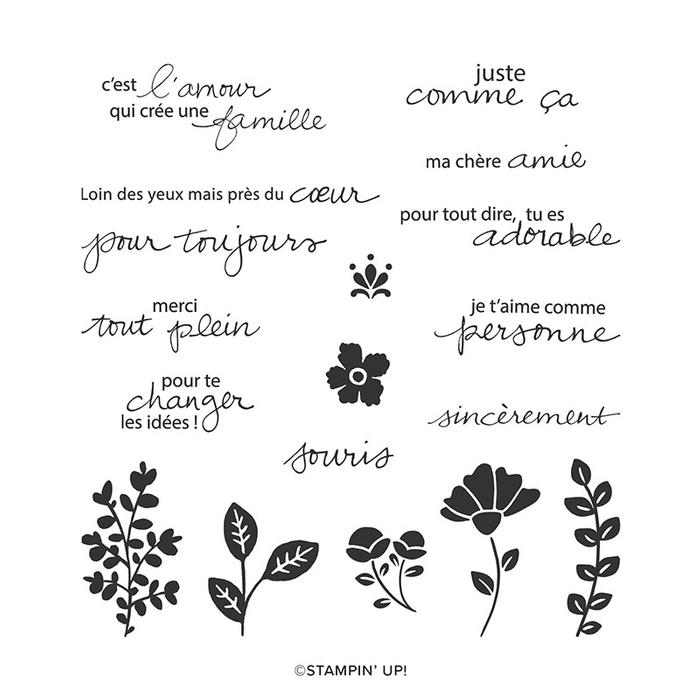 c'est l'amour
qui crée une famille
juste
comme ça
ma chère amie
Loin des yeux mais près du cœur
pour tout dire, tu es
adorable
pour toujours
merci
tout plein
je t'aime comme
personne
pour te
changer
les idées !
sincèrement
souris
©STAMPIN' UP!